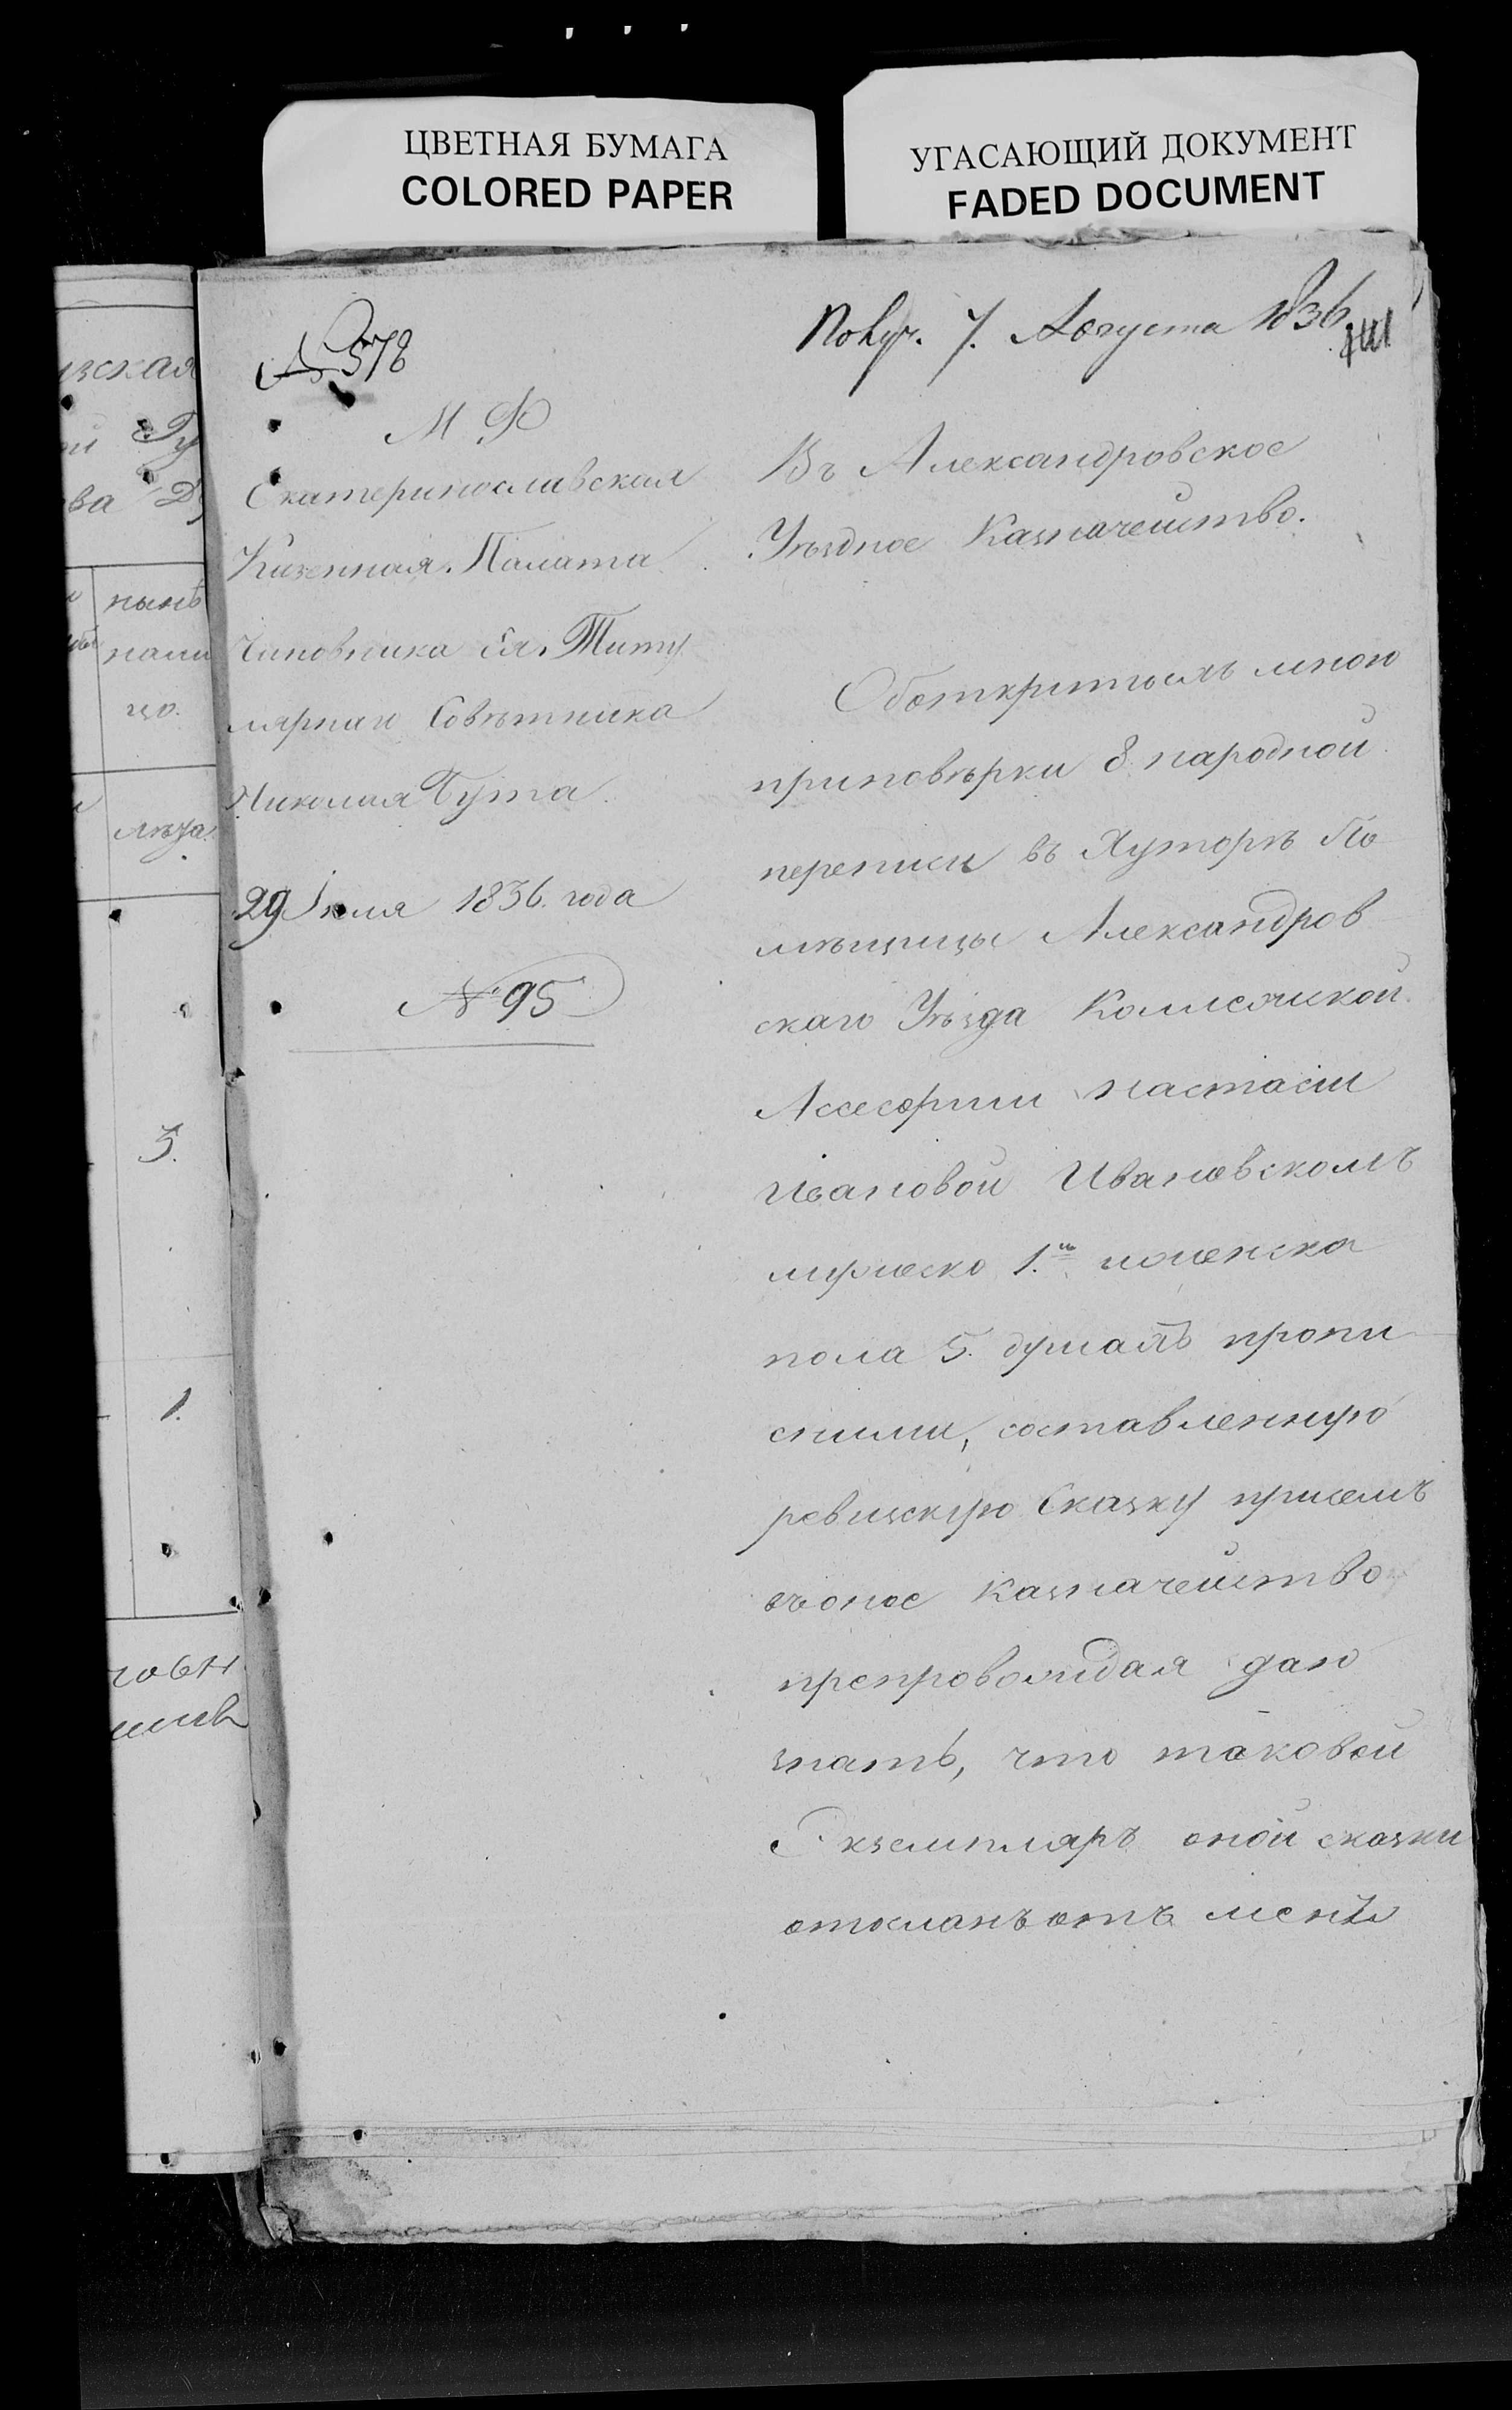 ЦВЕТНАЯ БУМАГА
COLORED PAPER
УГАСАЮЩИЙ ДОКУМЕНТ
FADED DOCUMENT
№ 578
Получ. 7. Августа 1836
М Ф
Екатеринославская
Казенная Палата
Чиновника Ея Титу
лярнаго Совѣтника
Николая Бута
29 Іюля 1836. года
№ 95
Въ Александровское
Уѣздное Казначейство.
Оботкритомъ мною
приповѣрки 8 народной
переписи въ Хуторѣ По
мѣщицы Александров
скаго Уѣзда Коллежской
Ассесорши Настасіи
Ивановой Ивановскомъ
мужеска 1. и женска
пола 5. душахъ пропи
сними, составленную
ревизскую Сказку присемъ
въоное Казначейство
препровождая даю
знать, что таковой
Экземпляръ оной сказки
отосланъ отъ меня
зская
ой Гу
ва Д
нынѣ
нали
цо.
лѣта.
3.
1.